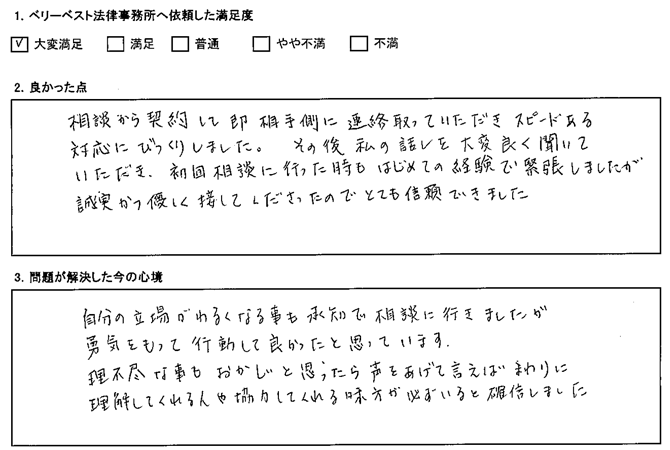 1. ベリーベスト法律事務所へ依頼した満足度
☑ 大変満足 □ 満足 □ 普通 □ やや不満 □ 不満
2. 良かった点
相談から契約して即相手側に連絡取っていただきスピードある
対応にびっくりしました。その後私の話しを大変良く聞いて
いただき、初回相談に行った時もはじめての経験で緊張しましたが
誠実かつ優しく接してくださったのでとても信頼できました
3. 問題が解決した今の心境
自分の立場がわるくなる事も承知で相談に行きましたが
勇気をもって行動して良かったと思っています。
理不尽な事もおかしいと思うたら声をあげて言えばまわりに
理解してくれる人や協力してくれる味方が必ずいると確信しました